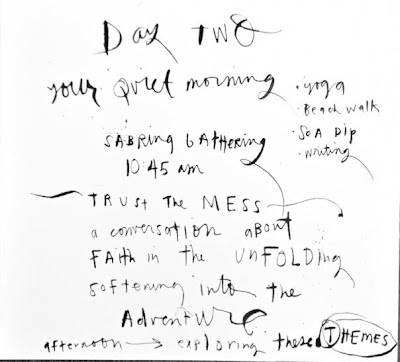 Day TWO
your Quiet morning
• yoga
• Beach walk
• SOA Dip
• writing
SABRING GATHERING
10:45 am
TRUST THE MESS
a conversation about
FAITH in the unFOLDing
softening into the
AdventURE
afternoon → exploring these THEMES